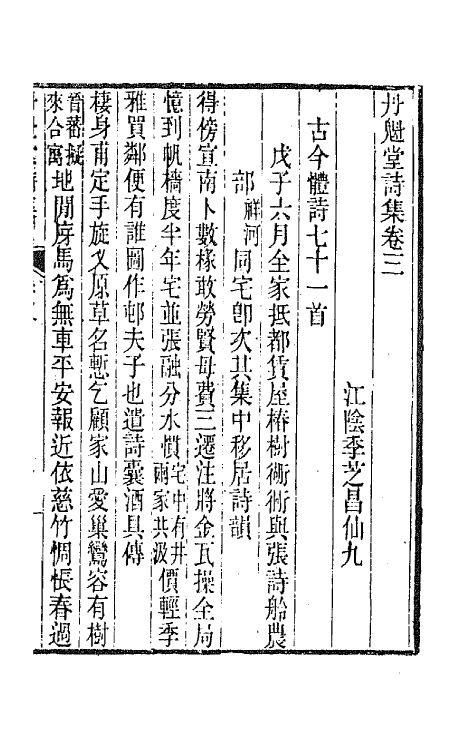 丹魁堂詩集卷三
江陰季芝昌仙九
古今體詩七十一首
戊子六月全家抵都賃屋椿樹衚衕與張詩舲農
部祥河同宅卽次其集中移居詩韻
得傍宣南卜數椽敢勞賢母費三遷注將金瓦操全局
憶到帆檣度半年宅並張融分水慣宅中有井兩家共汲價輕季
雅買鄰便有誰圖作邨夫子也遣詩囊酒具傳
棲身甫定手旋叉原草名慙乞顧家山愛巢鸞容有樹
晉蕃擬來合寓地閒房馬爲無車平安報近依慈竹惆悵春過